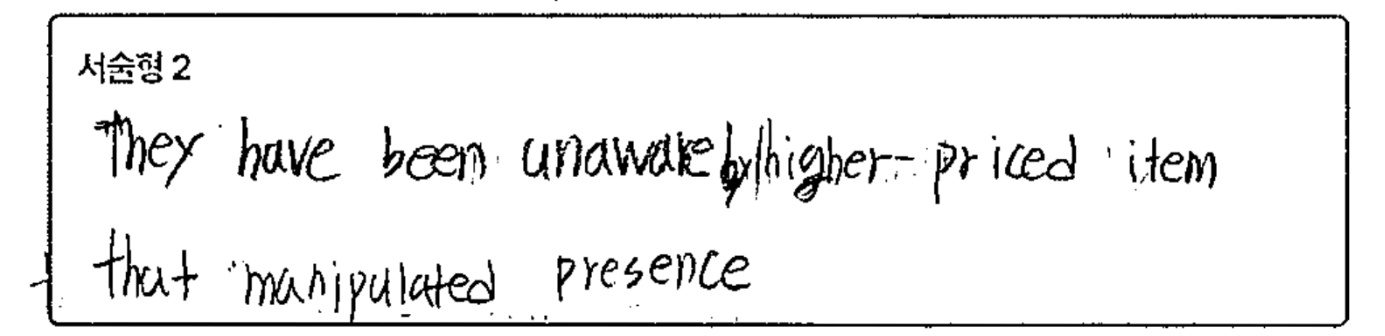 서술형 2
They have been unaware by higher-priced item
that manipulated presence